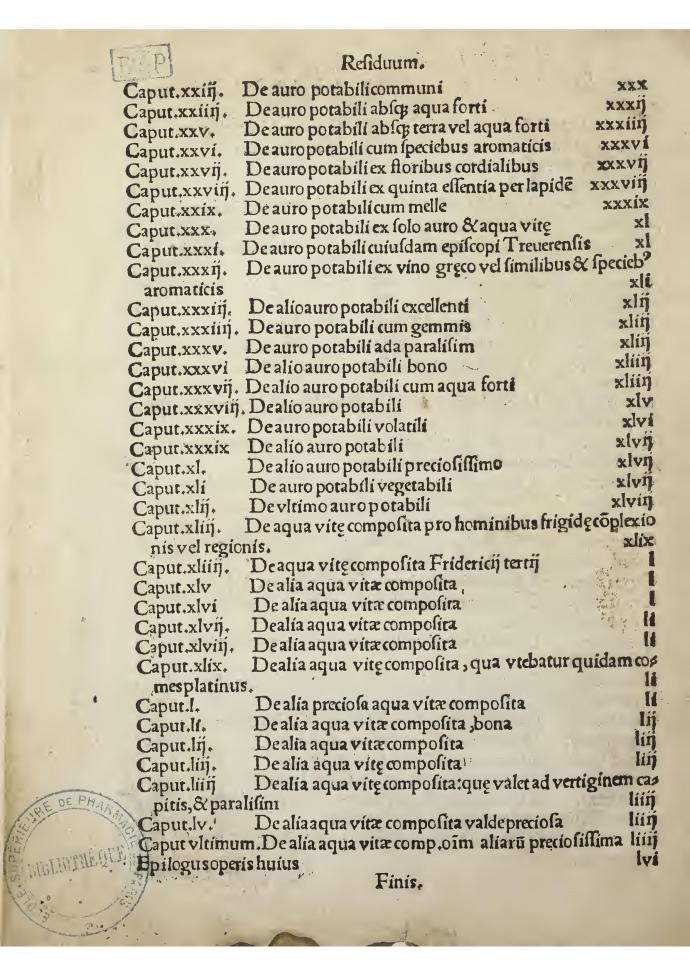 Reſiduum.
Caput.xxiij. De auro potabili communi xxx
Caput.xxiiij. De auro potabili abſqȝ aqua forti xxxij
Caput.xxv. De auro potabili abſqȝ terra vel aqua forti xxxiiij
Caput.xxvi. De auro potabili cum ſpeciebus aromaticis xxxvi
Caput.xxvij. De auro potabili ex floribus cordialibus xxxvij
Caput.xxviij. De auro potabili ex quinta eſſentia per lapidē xxxviij
Caput.xxix. De auro potabili cum melle xxxix
Caput.xxx. De auro potabili ex ſolo auro & aqua vitę xl
Caput.xxxi. De auro potabili cuiuſdam epiſcopi Treuerenſis xl
Caput.xxxij. De auro potabili ex vino gręco vel ſimilibus & ſpecieb⁹
aromaticis xli
Caput.xxxiij. De alio auro potabili excellenti xlij
Caput.xxxiiij. De auro potabili cum gemmis xliij
Caput.xxxv. De auro potabili ada paraliſim xliij
Caput.xxxvi De alio auro potabili bono xliiij
Caput.xxxvij. De alio auro potabili cum aqua forti xliiij
Caput.xxxviij. De alio auro potabili xlv
Caput.xxxix. De auro potabili volatili xlvi
Caput.xxxix De alio auro potabili xlvij
Caput.xl. De alio auro potabili precioſiſſimo xlvij
Caput.xli De auro potabili vegetabili xlvij
Caput.xlij. De vltimo auro potabili xlviij
Caput.xliij. De aqua vitę compoſita pro hominibus frigidę cōplexio
nis vel regionis. xlix
Caput.xliiij. De aqua vitę compoſita Fridericij tertij l
Caput.xlv De alia aqua vitæ compoſita, l
Caput.xlvi De alia aqua vitæ compoſita l
Caput.xlvij. De alia aqua vitæ compoſita li
Caput.xlviij. De alia aqua vitæ compoſita li
Caput.xlix. De alia aqua vitę compoſita, qua vtebatur quidam co⸗
mes platinus. li
Caput.l. De alia precioſa aqua vitæ compoſita li
Caput.li. De alia aqua vitæ compoſita, bona lij
Caput.lij. De alia aqua vitæ compoſita liij
Caput.liij. De alia aqua vitę compoſita liij
Caput.liiij De alia aqua vitę compoſita: quę valet ad vertiginem ca⸗
pitis, & paraliſim liiij
Caput.lv. De alia aqua vitæ compoſita valde precioſa liiij
Caput vltimum. De alia aqua vitæ comp. oīm aliarū preçioſiſſima liiij
Epilogus operis huius lvi
Finis.
BIBLIOTHÈQUE